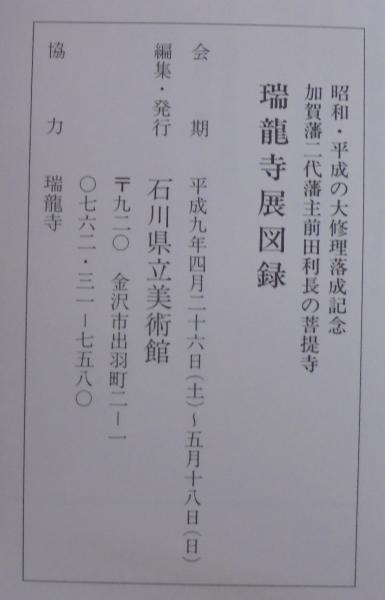 昭和・平成の大修理落成記念
加賀藩二代藩主前田利長の菩提寺
瑞龍寺展図録
会期 平成九年四月二十六日(土)~五月十八日(日)
編集・発行 石川県立美術館
〒九二〇 金沢市出羽町二-一
〇七六二・三一-七五八〇
協力 瑞龍寺